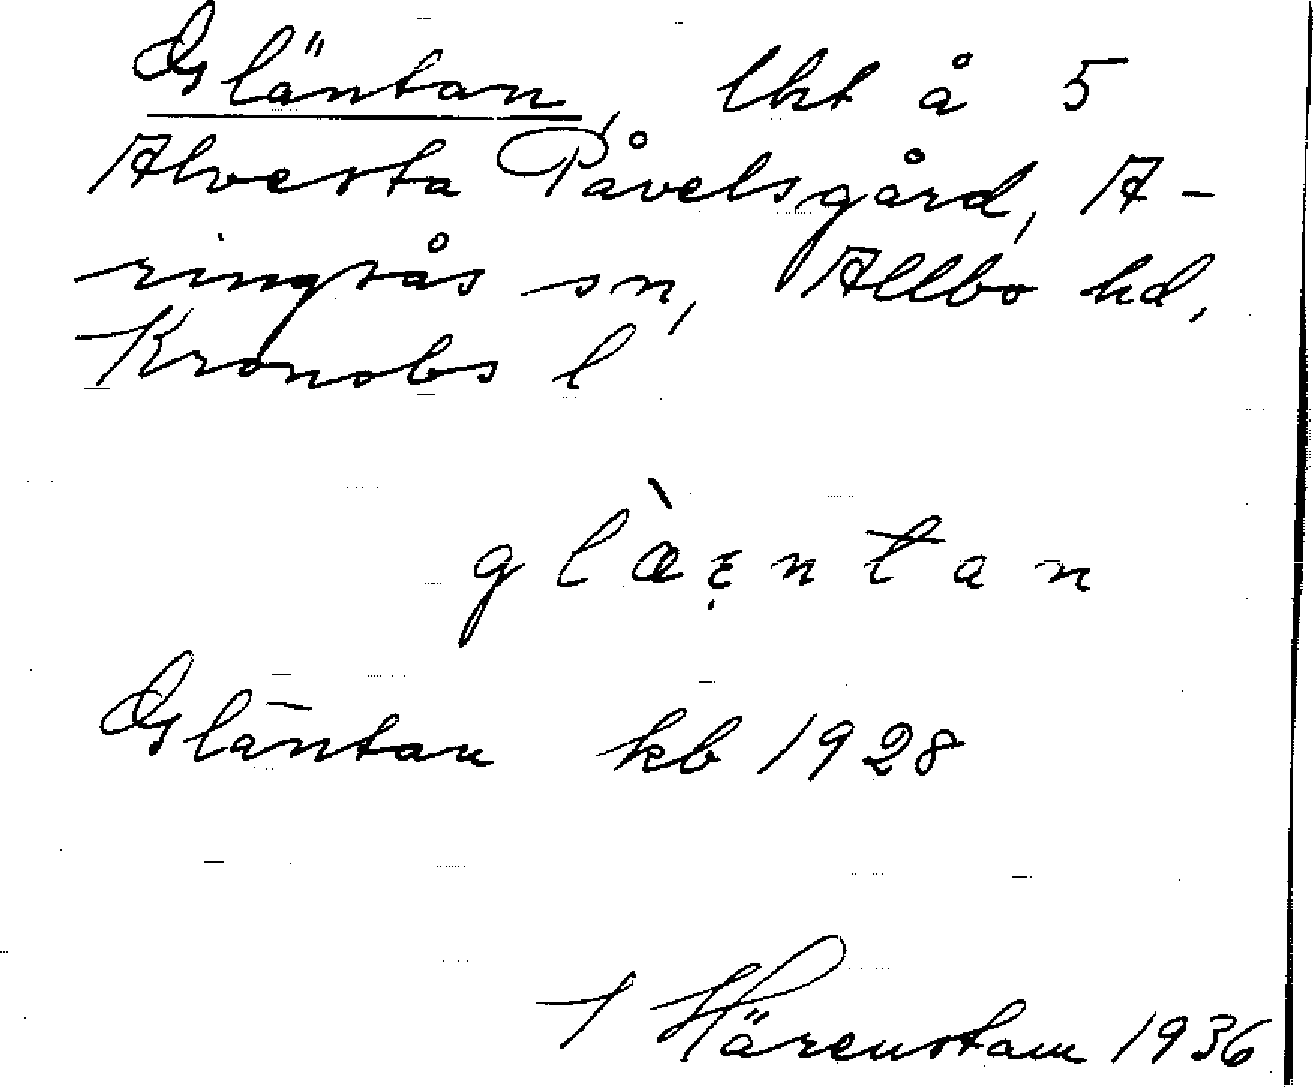 Gläntan, lht å 5
Alvesta Påvelsgård, A-
ringsås sn, Allbo hd,
Kronobs l
glæ̀ɛ̣ntan
Gläntan kb 1928
Härenstam 1936